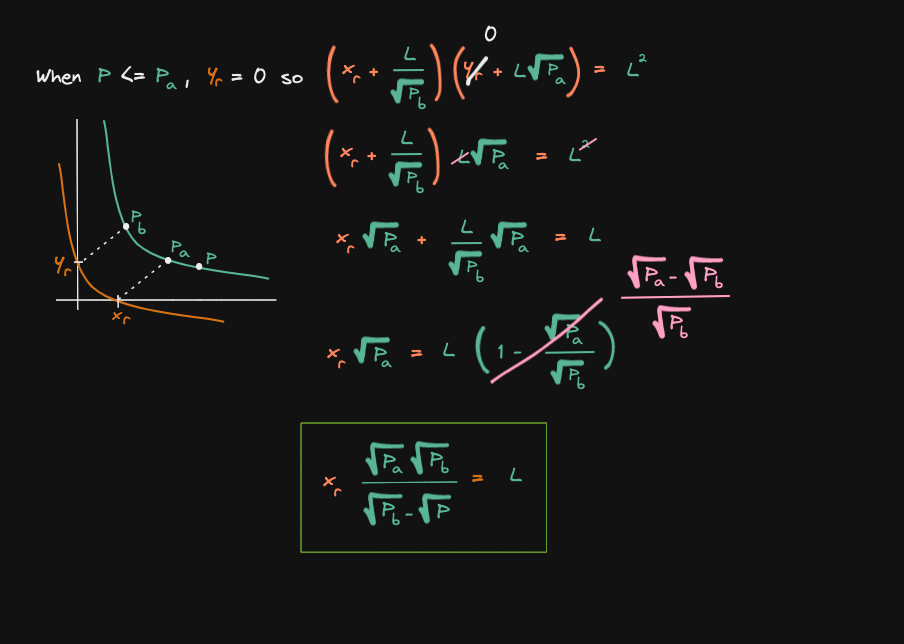 When P <= Pₐ, yᵣ = 0 so (xᵣ + L/√P_b) (yᵣ + L√Pₐ) = L²
0
(xᵣ + L/√P_b) L√Pₐ = L²
xᵣ √Pₐ + L/√P_b √Pₐ = L
xᵣ √Pₐ = L (1 - √Pₐ/√P_b)
(√Pₐ - √P_b)/√P_b
xᵣ (√Pₐ √P_b)/(√P_b - √P) = L
P_b
Pₐ
P
yᵣ
xᵣ